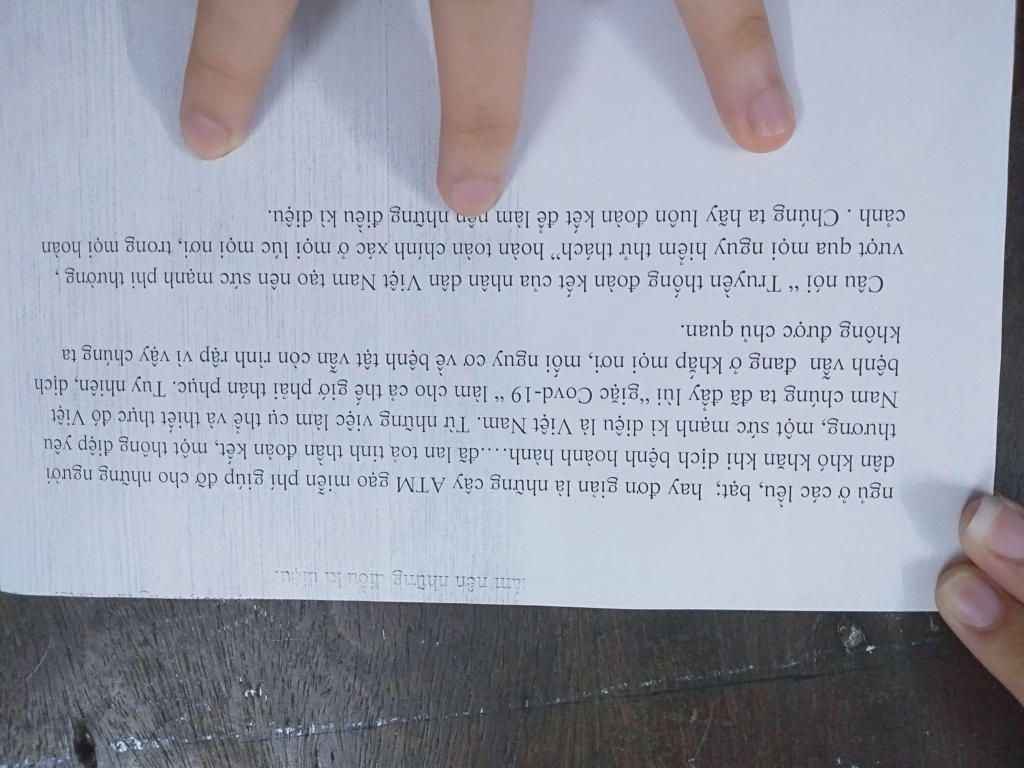 ngủ ở các lều, bạt; hay đơn giản là những cây ATM gạo miễn phí giúp đỡ cho những người
dân khó khăn khi dịch bệnh hoành hành….đã lan toả tinh thần đoàn kết, một thông điệp yêu
thương, một sức mạnh kì diệu là Việt Nam. Từ những việc làm cụ thể và thiết thực đó Việt
Nam chúng ta đã đẩy lùi “giặc Covd-19 “ làm cho cả thế giớ phải thán phục. Tuy nhiên, dịch
bệnh vẫn đang ở khắp mọi nơi, mối nguy cơ về bệnh tật vẫn còn rình rập vì vậy chúng ta
không được chủ quan.
Câu nói “ Truyền thống đoàn kết của nhân dân Việt Nam tạo nên sức mạnh phi thường ,
vượt qua mọi nguy hiểm thử thách” hoàn toàn chính xác ở mọi lúc mọi nơi, trong mọi hoàn
cảnh . Chúng ta hãy luôn đoàn kết để làm nên những điều kì diệu.
làm nên những điều kì diệu.